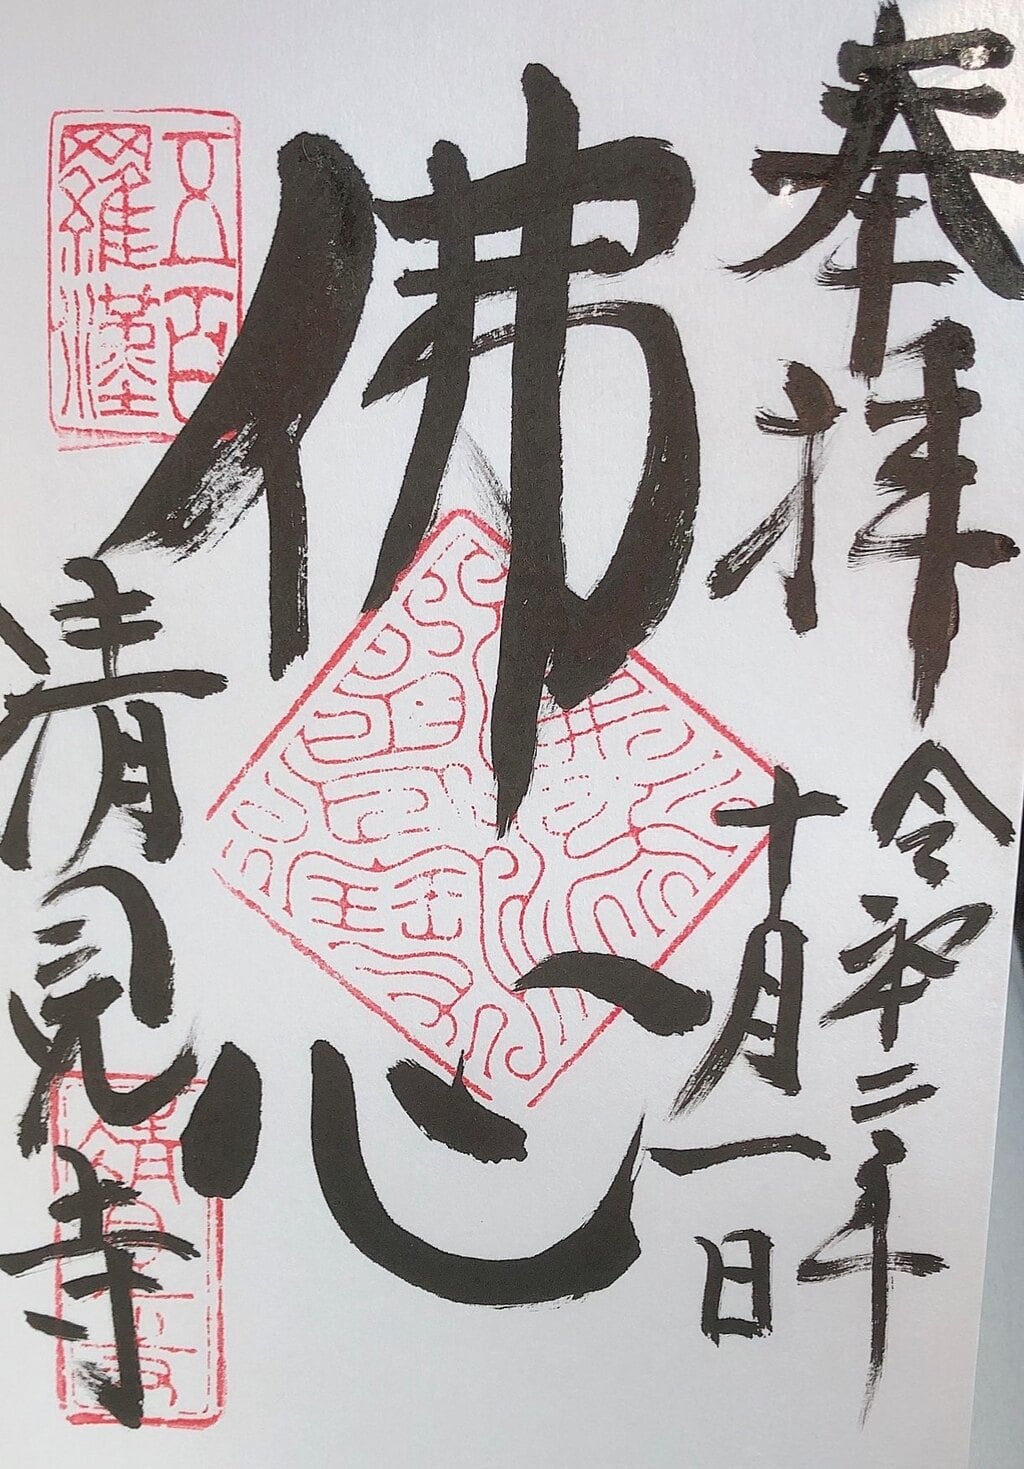 奉拝
令和二年
十月一日
佛心
五百
羅漢
清見寺
清見寺